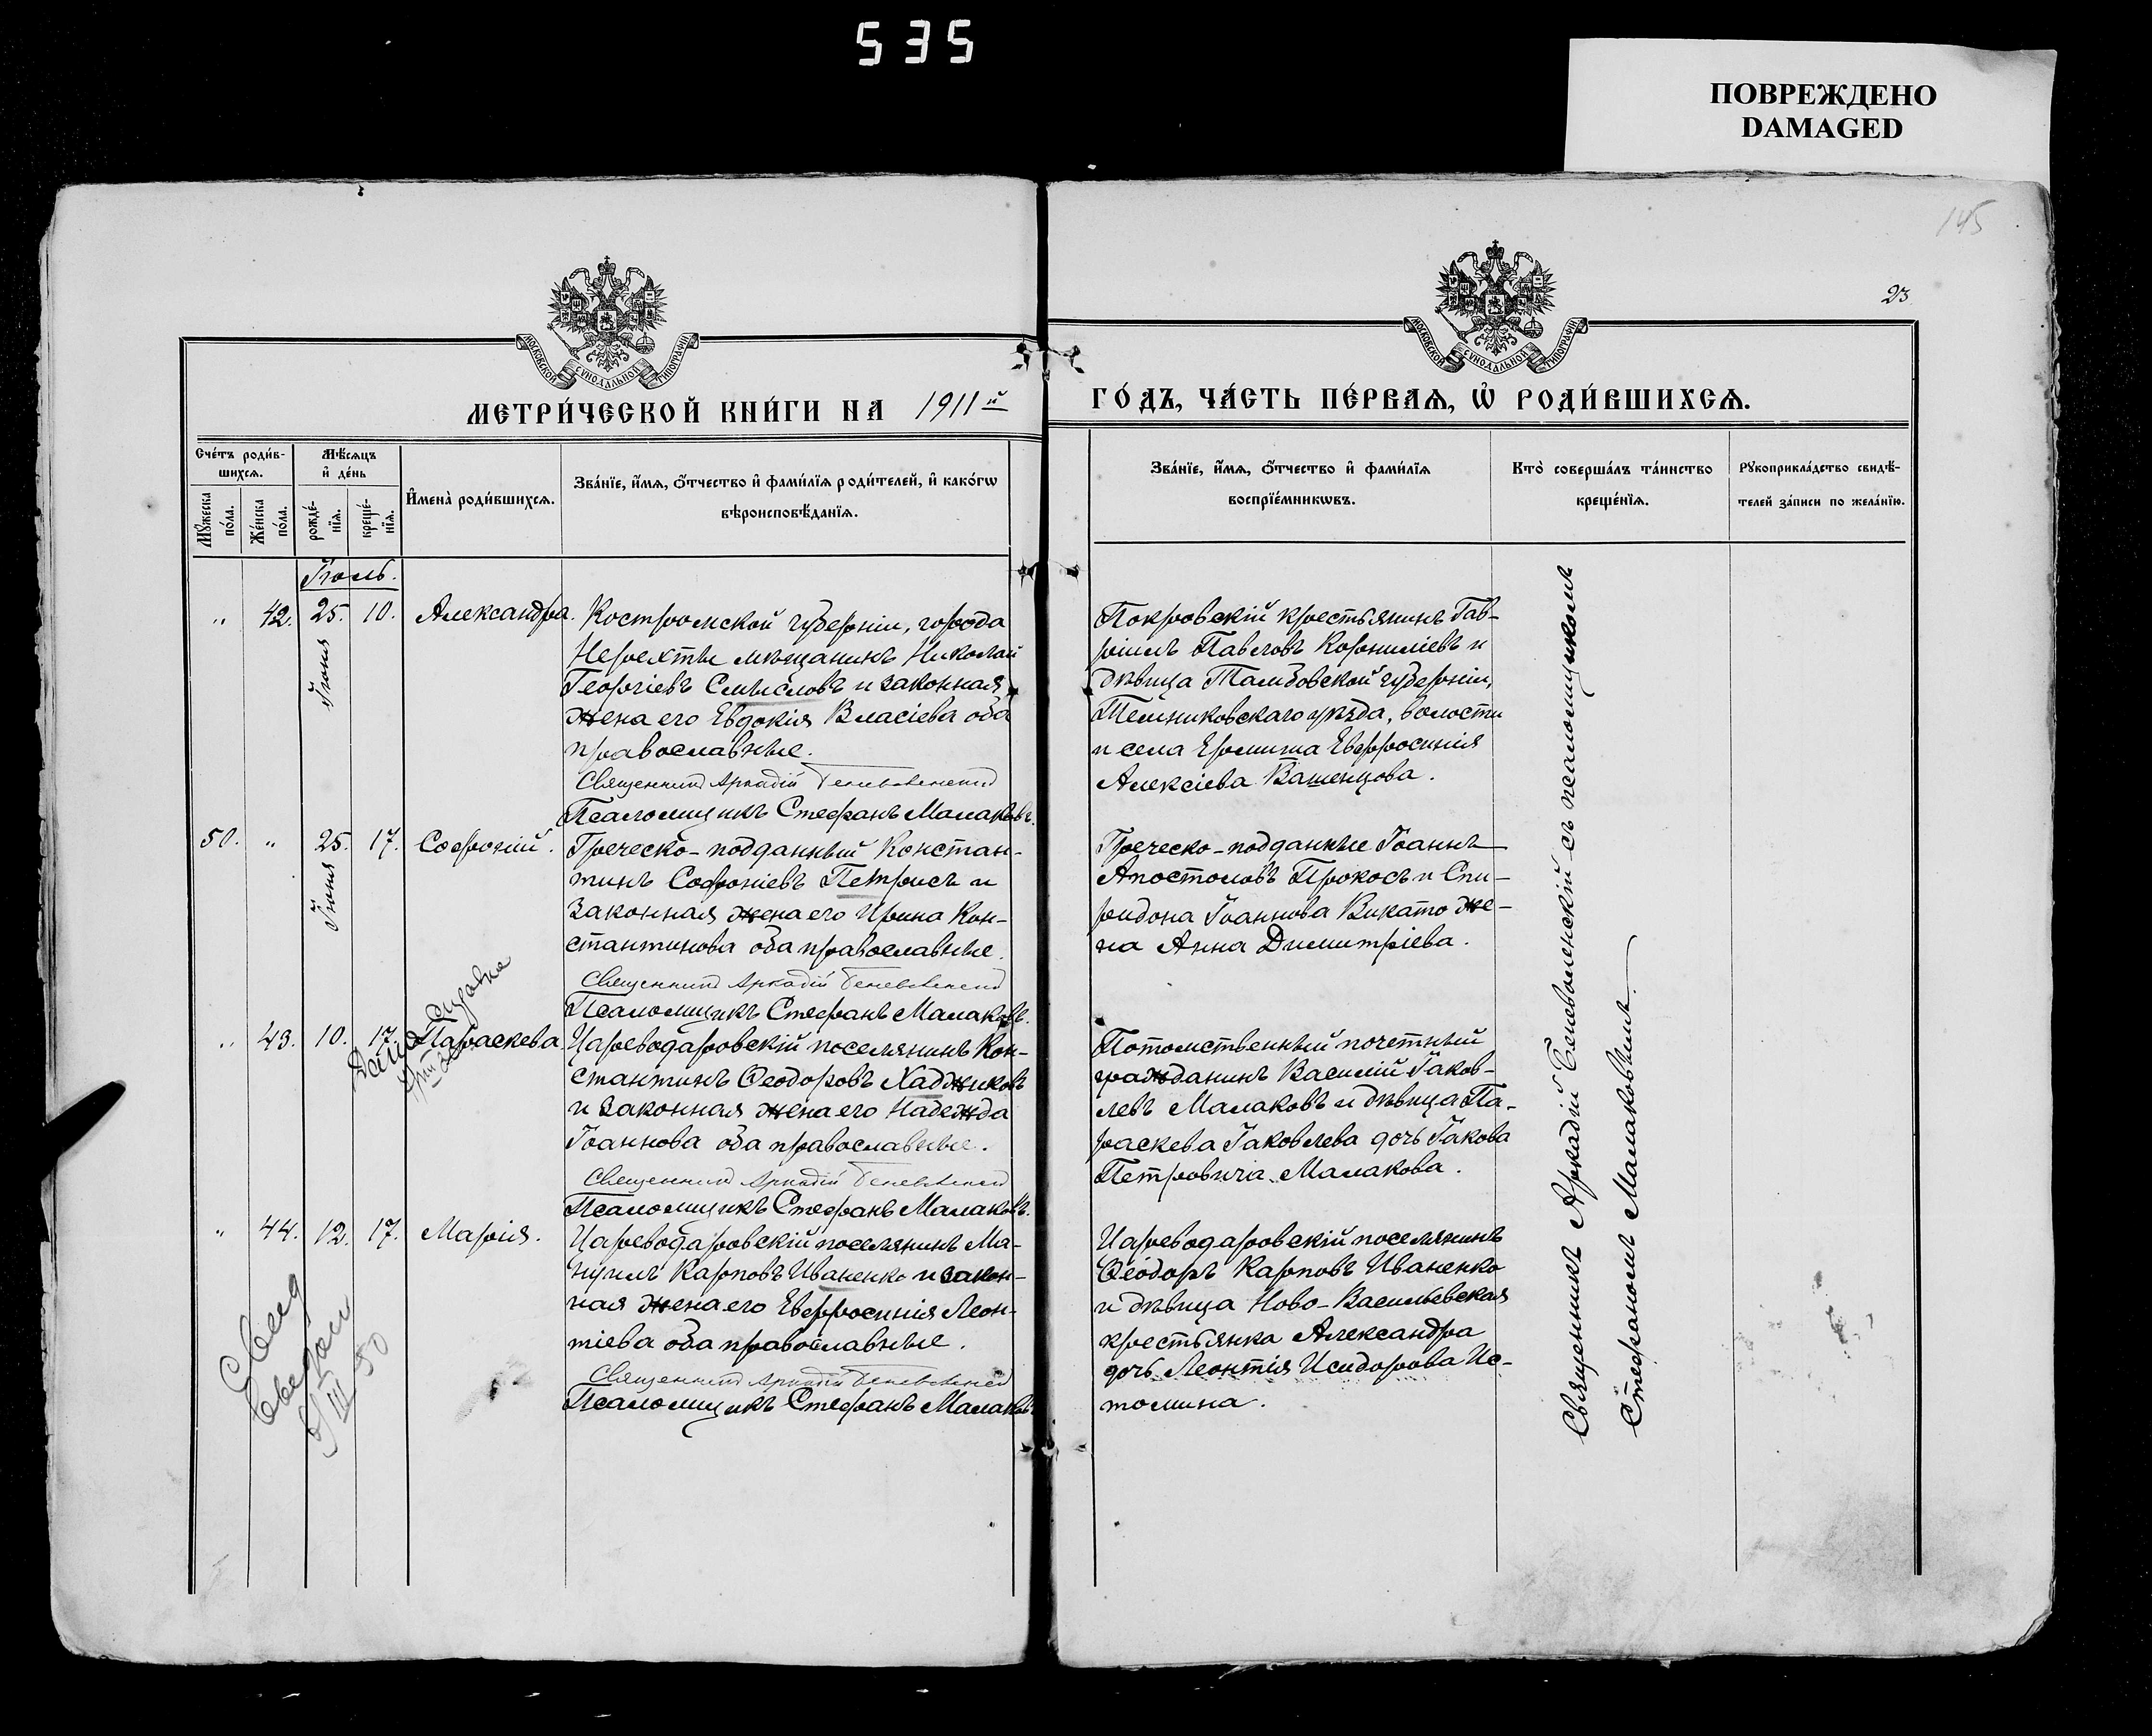 535
ПОВРЕЖДЕНО
DAMAGED
145
23
МОСКОВСКОЙ СѴНОДАЛЬНОЙ ТИПОГРАФІИ
МОСКОВСКОЙ СѴНОДАЛЬНОЙ ТИПОГРАФІИ
МЕТРИ́ЧЕСКОЙ КНИ́ГИ НА 1911й
ГО́ДЪ, ЧА́СТЬ ПЕ́РВАЯ, Ѡ҆ РОДИ́ВШИХСЯ.
Сче́тъ роди́в-
шихся.
Мѣ́сяцъ
и҆ де́нь
Мꙋ́жеска по́ла.
Же́нска по́ла.
рожде́-
нїя.
креще́-
нїя.
И҆мена̀ роди́вшихся.
Зва́нїе, и҆́мя, ѻ҆́тчество и҆ фами́лїя роди́телей, и҆ како́гѡ
вѣроисповѣ́данїя.
Зва́нїе, и҆́мя, ѻ҆́тчество и҆ фами́лїя
воспрїе́мникѡвъ.
Кто̀ соверша́лъ та́инство
креще́нїя.
Рꙋкоприкла́дство свидѣ́-
телей за́писи по жела́нїю.
Іюль.
" 42. 25. 10. Александра.
Іюня
Костромской губерніи, города
Нерехты мѣщанинъ Николай
Георгіевъ Смысловъ и законная
жена его Евдокія Власіева оба
православные.
Священникъ Аркадій Беневоленскій
Псаломщикъ Стефанъ Малаковъ.
Покровскій крестьянинъ Гав-
ріилъ Павловъ Корниліевъ и
дѣвица Тамбовской губерніи,
Темниковскаго уѣзда, волости
и села Ермиша Евфросинія
Алексіева Вашенцова.
50. " 25. 17. Софроній.
Іюня
Греческо-подданный Констан-
тинъ Софроніевъ Петрисъ и
законная жена его Ирина Кон-
стантинова оба православные.
Священникъ Аркадій Беневоленскій
Псаломщикъ Стефанъ Малаковъ.
Греческо-подданные Іоаннъ
Апостоловъ Прокосъ и Спи-
ридона Іоаннова Викато же-
на Анна Димитріева.
" 43. 10. 17. Параскева.
Цареводаровскій поселянинъ Кон-
стантинъ Ѳеодоровъ Хаджиковъ
и законная жена его Надежда
Іоаннова оба православные.
Священникъ Аркадій Беневоленскій
Псаломщикъ Стефанъ Малаковъ.
Потомственный почетный
гражданинъ Василій Іаков-
левъ Малаковъ и дѣвица Па-
раскева Іаковлева дочь Іакова
Петровича Малакова.
" 44. 12. 17. Марія.
Цареводаровскій поселянинъ Ма-
нуилъ Карповъ Иваненко и закон-
ная жена его Евфросинія Леон-
тіева оба православные.
Священникъ Аркадій Беневоленскій
Псаломщикъ Стефанъ Малаковъ
Цареводаровскій поселянинъ
Ѳеодоръ Карповъ Иваненко
и дѣвица Ново-Васильевская
крестьянка Александра
дочь Леонтія Исидорова Ис-
томина.
Священникъ Аркадій Беневоленскій съ псаломщикомъ
Стефаномъ Малаковымъ
III 50